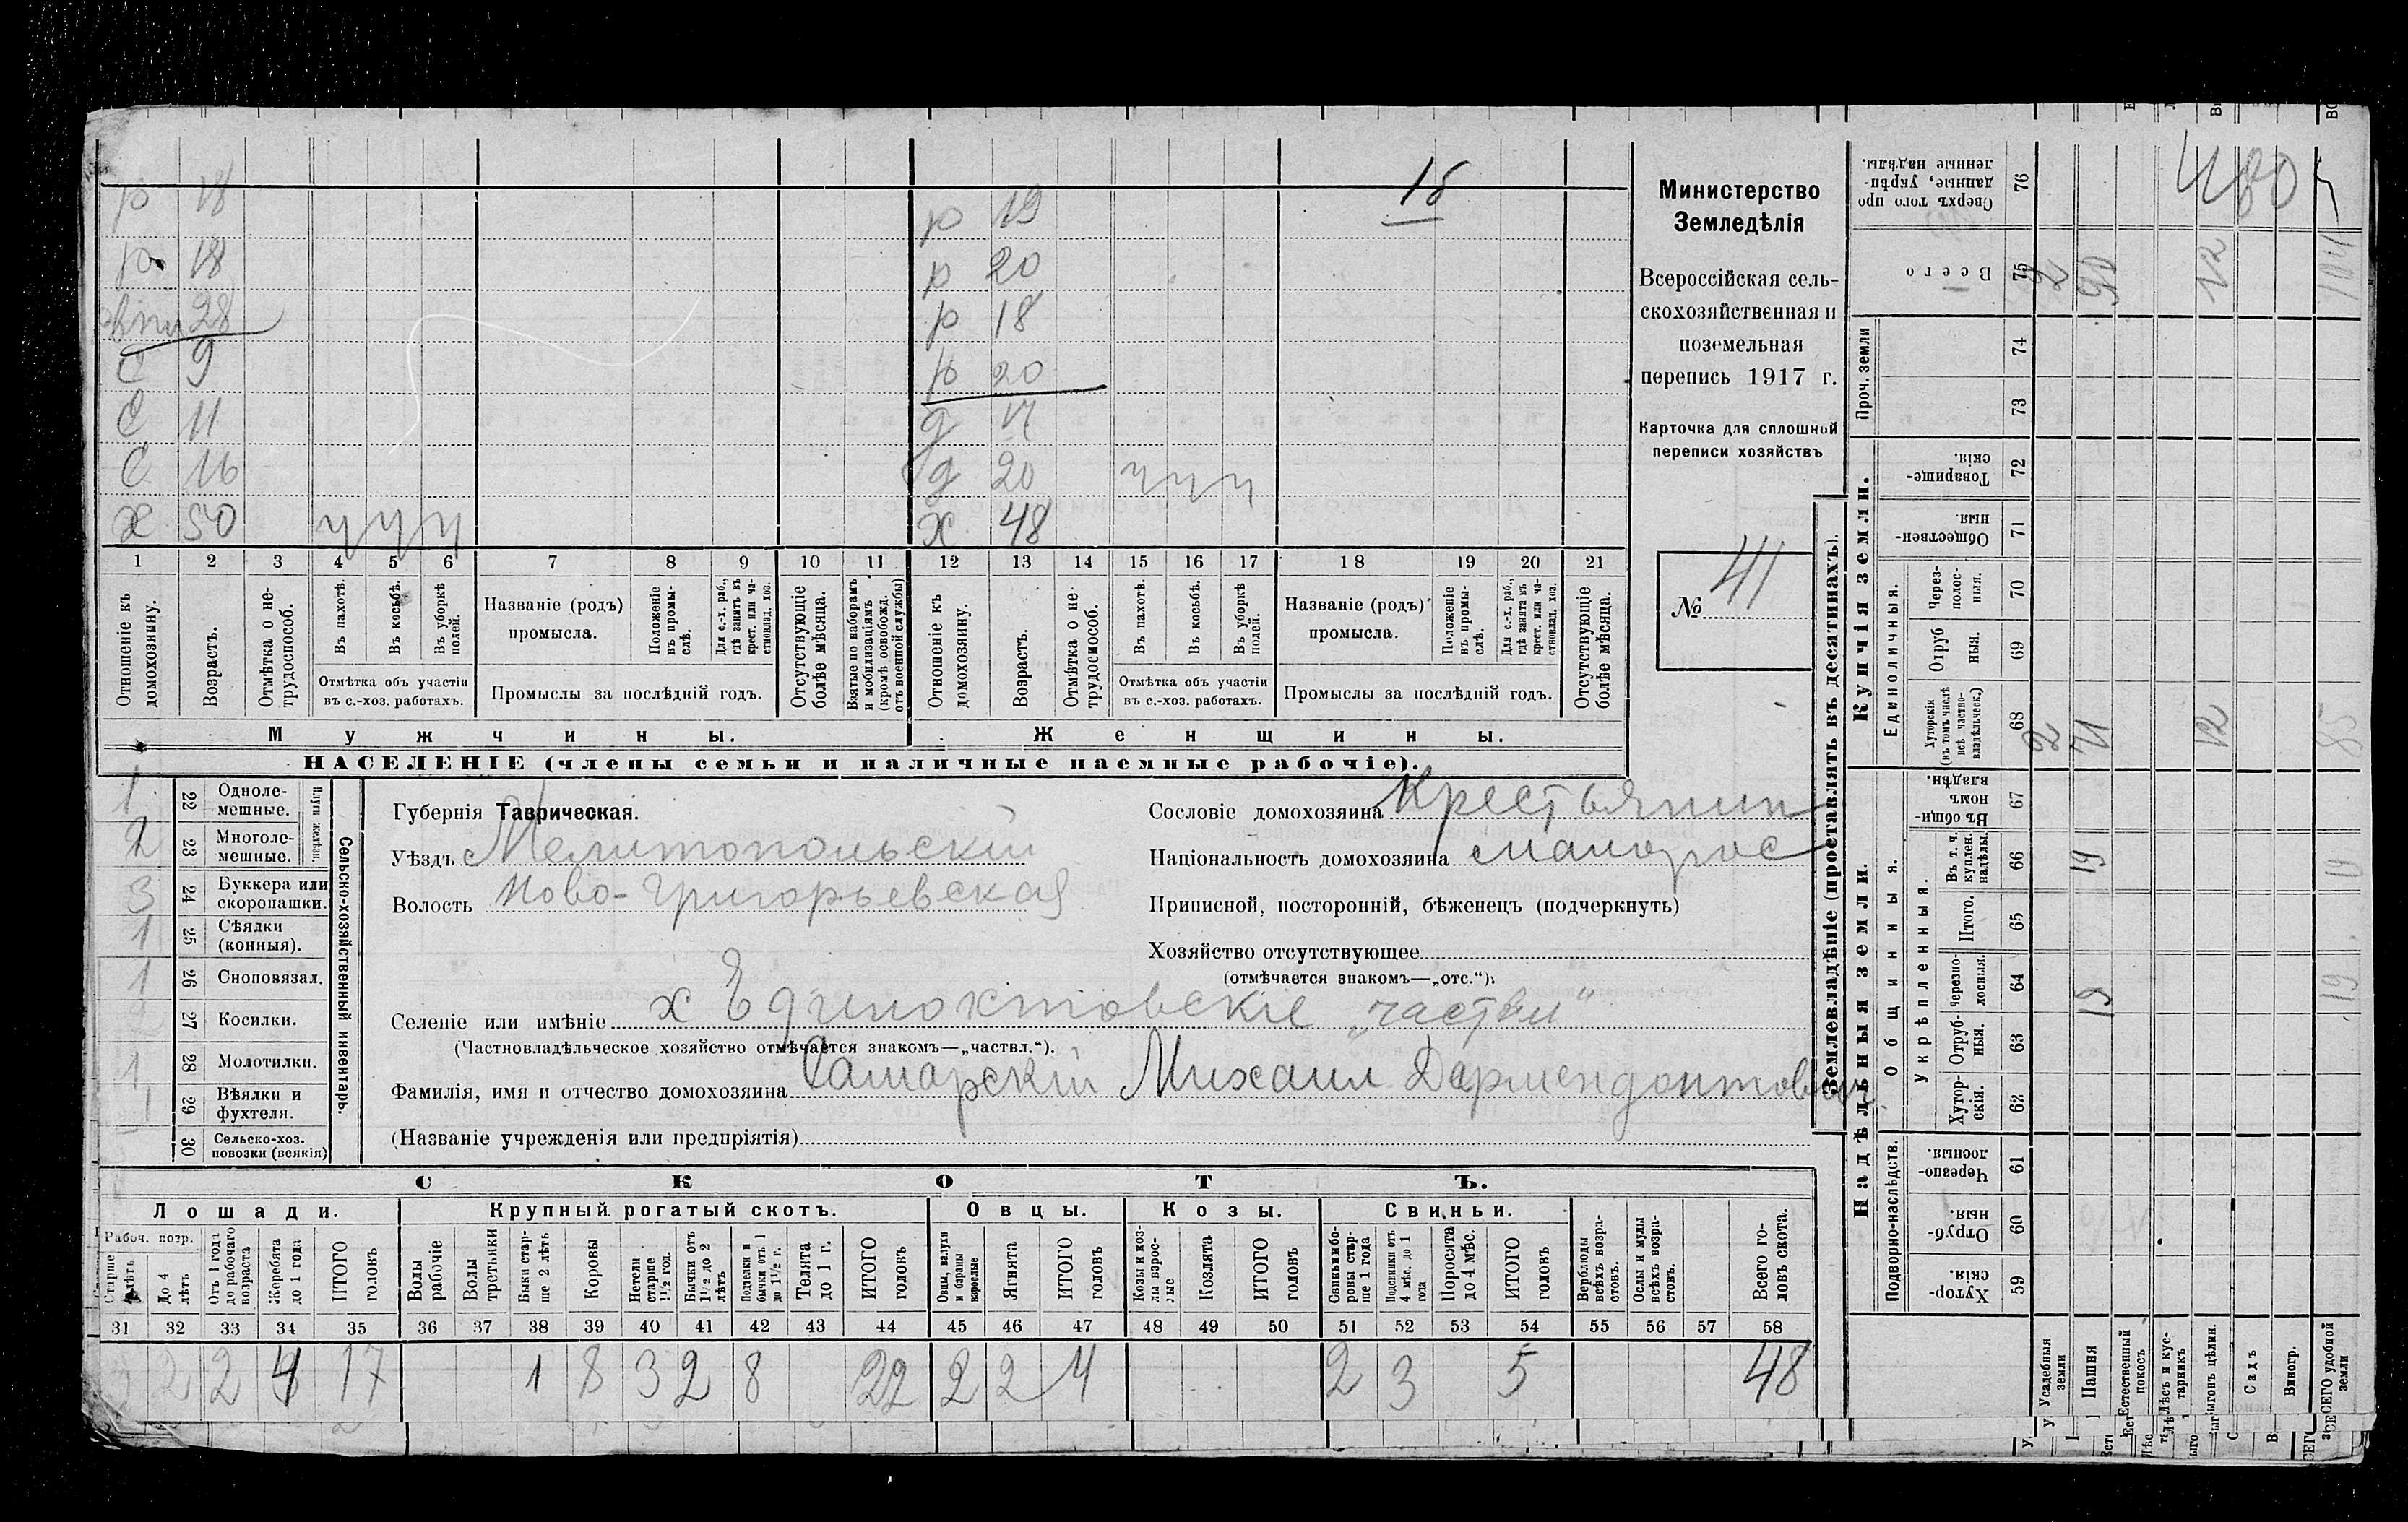 15
р 18
р 18
28
с 9
с 11
с 16
х 50 ч ч ч
р 19
р 20
р 18
р 20
д
д 20 ч ч ч
х 48
1 2 3 4 5 6 7 8 9 10 11 12 13 14 15 16 17 18 19 20 21
Отношеніе къ домохозяину.
Возрастъ.
Отмѣтка о не-трудоспособ.
Въ пахотѣ.
Въ косьбѣ.
Въ уборкѣ полей.
Отмѣтка объ участіи въ с.-хоз. работахъ.
Названіе (родъ) промысла.
Положеніе въ промы-слѣ.
Для с.-х. раб., гдѣ занятъ въ крест. или ча-стновлад. хоз.
Промыслы за послѣдній годъ.
Отсутствующіе болѣе мѣсяца.
Взятые по наборамъ и мобилизаціямъ (кромѣ освобожд. отъ военной службы)
Отношеніе къ домохозяину.
Возрастъ.
Отмѣтка о не-трудоспособ.
Въ пахотѣ.
Въ косьбѣ.
Въ уборкѣ полей.
Отмѣтка объ участіи въ с.-хоз. работахъ.
Названіе (родъ) промысла.
Положеніе въ промы-слѣ.
Для с.-х. раб., гдѣ занята въ крест. или ча-стновлад. хоз.
Промыслы за послѣдній годъ.
Отсутствующіе болѣе мѣсяца.
Мужчины.
Женщины.
НАСЕЛЕНІЕ (члены семьи и наличные наемные рабочіе).
Министерство
Земледѣлія
Всероссійская сель-
скохозяйственная и
поземельная
перепись 1917 г.
Карточка для сплошной
переписи хозяйствъ
№ 41
1 22 Одноле-мешные.
2 23 Многоле-мешные.
Плуги желѣзн.
3 24 Буккера или скоропашки.
1 25 Сѣялки (конныя).
1 26 Сноповязал.
27 Косилки.
1 28 Молотилки.
1 29 Вѣялки и фухтеля.
30 Сельско-хоз. повозки (всякія)
Сельско-хозяйственный инвентарь.
Губернія Таврическая.
Уѣздъ Мелитопольскій
Волость Ново-Григорьевская
Сословіе домохозяина Крестьянин
Національность домохозяина малорос
Приписной, посторонній, бѣженецъ (подчеркнуть)
Хозяйство отсутствующее
(отмѣчается знакомъ—„отс.“).
Селеніе или имѣніе х
(Частновладѣльческое хозяйство отмѣчается знакомъ—„частвл.“).
Фамилія, имя и отчество домохозяина Самарскій Михаил
(Названіе учрежденія или предпріятія)
СКОТЪ.
Лошади.
Крупный рогатый скотъ.
Овцы.
Козы.
Свиньи.
Рабоч. возр.
Старше 4 лѣтъ
До 4 лѣтъ
Отъ 1 года до рабочаго возраста
Жеребята до 1 года
ИТОГО головъ
Волы рабочіе
Волы третьяки
Быки стар-ше 2 лѣтъ
Коровы
Нетели старше 1½ год.
Бычки отъ 1½ до 2 лѣтъ
Подтелки и бычки отъ 1 до 1½ г.
Телята до 1 г.
ИТОГО головъ
Овцы, валухи и бараны взрослые
Ягнята
ИТОГО головъ
Козы и коз-лы взрос-лые
Козлята
ИТОГО головъ
Свиньи и бо-ровы стар-ше 1 года
Подсвинки отъ 4 мѣс. до 1 года
Поросята до 4 мѣс.
ИТОГО головъ
Верблюды всѣхъ возра-стовъ.
Ослы и мулы всѣхъ возра-стовъ.
Всего го-ловъ скота.
31 32 33 34 35 36 37 38 39 40 41 42 43 44 45 46 47 48 49 50 51 52 53 54 55 56 57 58
2 2 4 17 1 8 3 2 8 22 2 2 4 2 3 5 48
Землевладѣніе (проставлять въ десятинахъ).
Купчія земли.
Надѣльныя земли.
Сверхъ того про-данные, укрѣп-ленные надѣлы. 76
Всего 75
Проч. земли
74
73
Товарище-скія. 72
Обществен-ныя. 71
Единоличныя.
Через-полос-ныя. 70
Отруб-ныя. 69
Хуторскія (въ томъ числѣ всѣ частно-владѣльческ.) 68
Общинныя.
Въ общи-номъ владѣн. 67
Укрѣпленныя.
Въ т. ч. куплен. надѣлы. 66
Итого. 65
Черезпо-лосныя. 64
Отруб-ныя. 63
Хутор-скія. 62
Подворно-наслѣдств.
Черезпо-лосныя. 61
Отруб-ныя. 60
Хутор-скія. 59
Усадебныя земли
Пашня
Естественный покосъ
Лѣсъ и кус-тарникъ
Выгонъ цѣлин.
Садъ
Виногр.
ВСЕГО удобной земли
2 90 12 104
2 71 12 85
19 19
19 19
480